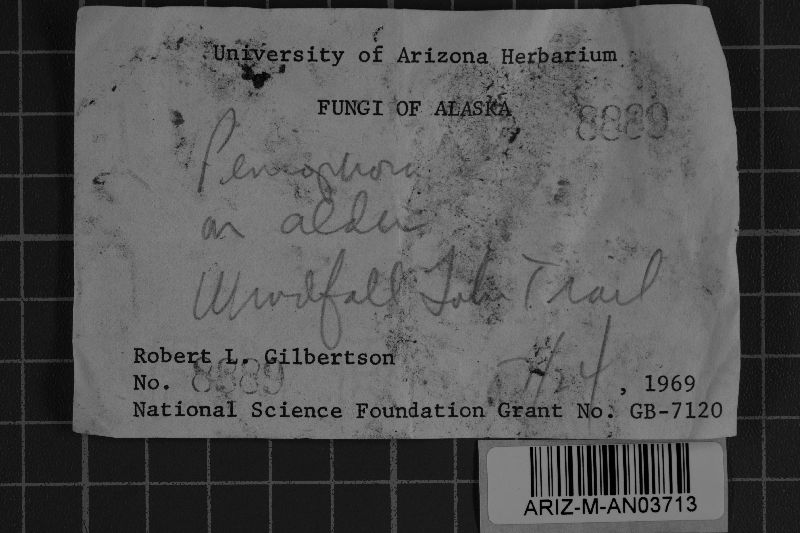 University of Arizona Herbarium
FUNGI OF ALASKA 8889
Peniophora
on alder
Windfall Lake Trail
Robert L. Gilbertson
No. 8889 , 1969
National Science Foundation Grant No. GB-7120
ARIZ-M-AN03713